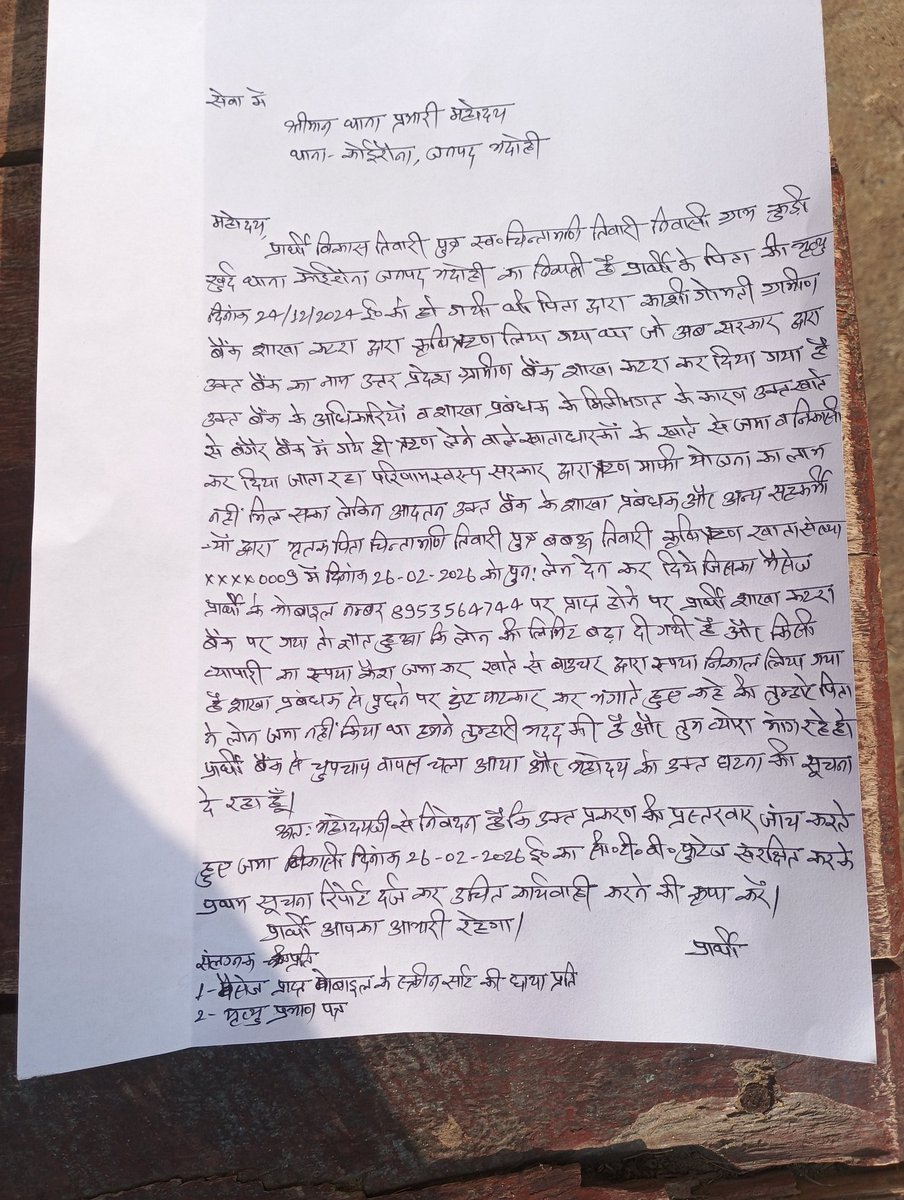 सेवा में
श्रीमान थाना प्रभारी महोदय
थाना- कोईरौना, जनपद भदोही
महोदय,
प्रार्थी विकास तिवारी पुत्र स्व० चिन्तामणी तिवारी निवासी ग्राम कुड़ी
खुर्द थाना कोईरौना जनपद भदोही का निवासी है प्रार्थी के पिता की मृत्यु
दिनांक 24/12/2024 ई० को हो गयी थी पिता द्वारा काशी गोमती ग्रामीण
बैंक शाखा कटरा द्वारा कृषि ऋण लिया गया था जो अब सरकार द्वारा
उक्त बैंक का नाम उत्तर प्रदेश ग्रामीण बैंक शाखा कटरा कर दिया गया है
उक्त बैंक के अधिकारियों व शाखा प्रबंधक के मिलीभगत के कारण उक्त खाते
से बगैर बैंक में गये ही ऋण लेने वाले खाताधारकों के खाते से जमा व निकासी
कर दिया जाता रहा परिणामस्वरूप सरकार द्वारा ऋण माफी योजना का लाभ
नहीं मिल सका लेकिन आदतन उक्त बैंक के शाखा प्रबंधक और अन्य सहकर्मी
-यों द्वारा मृतक पिता चिन्तामणि तिवारी पुत्र बबऊ तिवारी कृषि ऋण खाता संख्या
xxxx0009 में दिनांक 26-02-2026 को पुन: लेन देन कर दिये जिसका मैसेज
प्रार्थी के मोबाइल नम्बर 8953564744 पर प्राप्त होने पर प्रार्थी शाखा कटरा
बैंक पर गया तो ज्ञात हुआ कि लोन की लिमिट बढ़ा दी गयी है और किसी
व्यापारी का रूपया कैश जमा कर खाते से बाउचर द्वारा रूपया निकाल लिया गया
है शाखा प्रबंधक से पुछने पर डांट फटकार कर भगाते हुए कहे की तुम्हारे पिता
ने लोन जमा नहीं किया था हमने तुम्हारी मदद की है और तुम व्योरा मांग रहे हो
प्रार्थी बैंक से चुपचाप वापस चला आया और महोदय को उक्त घटना की सूचना
दे रहा हूँ।
अत: महोदयजी से निवेदन है कि उक्त प्रकरण की प्रस्तरवार जांच करते
हुए जमा निकासी दिनांक 26-02-2026 ई० का सी०टी०वी० फुटेज संरक्षित करके
प्रथम सूचना रिपोर्ट दर्ज कर उचित कार्यवाही करने की कृपा करें।
प्रार्थी आपका आभारी रहेगा।
प्रार्थी
संलग्नक प्रति
1- मैसेज प्राप्त मोबाइल के स्क्रीन सॉट की छाया प्रति
2- मृत्यु प्रमाण पत्र